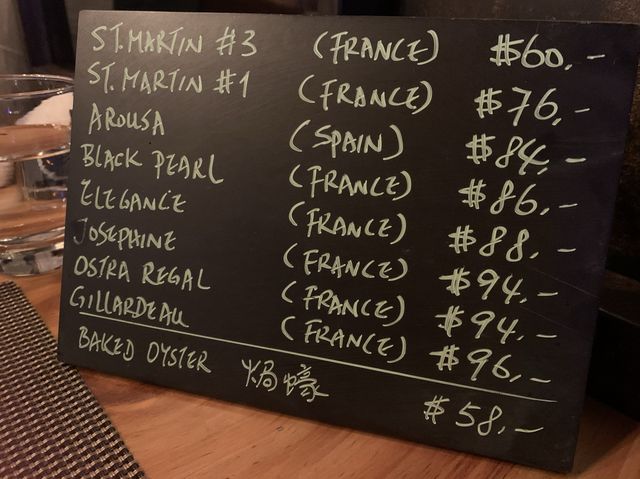 ST. MARTIN #3 (FRANCE) $60.-
ST. MARTIN #1 (FRANCE) $76.-
AROUSA (SPAIN) $84.-
BLACK PEARL (FRANCE) $86.-
ELEGANCE (FRANCE) $88.-
JOSEPHINE (FRANCE) $94.-
OSTRA REGAL (FRANCE) $94.-
GILLARDEAU (FRANCE) $96.-
BAKED OYSTER 焗蠔 $58.-